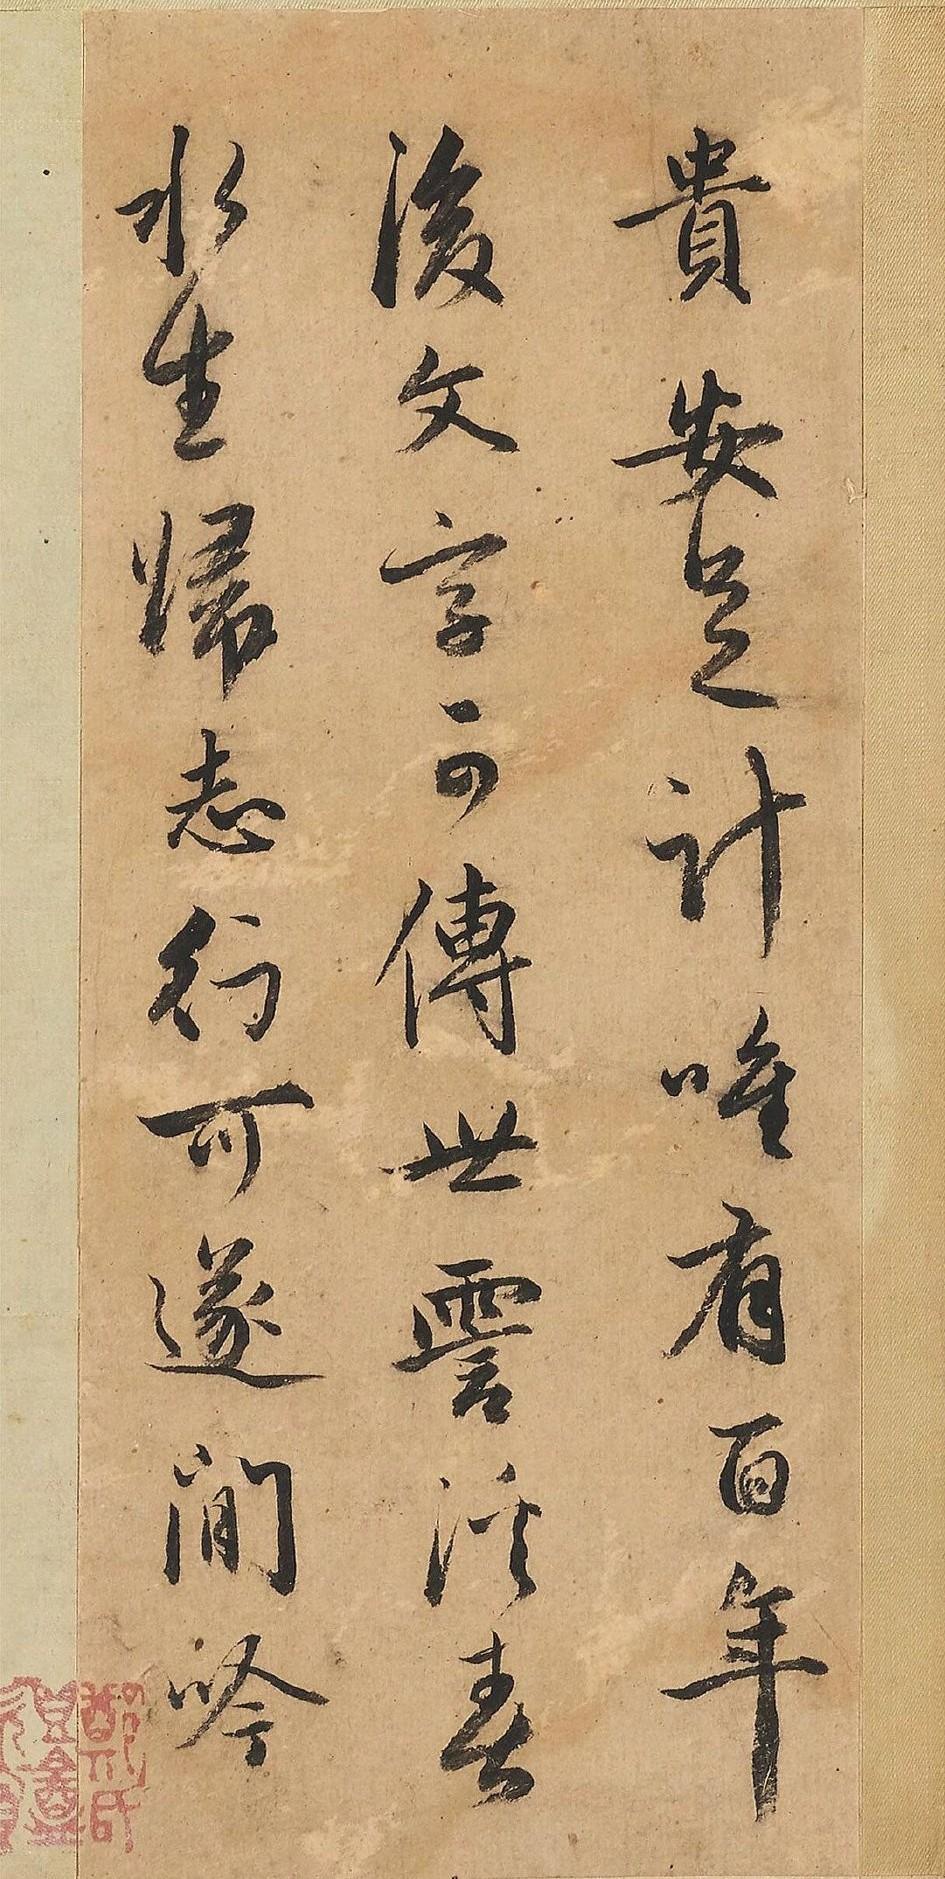 貴安足計唯有百年
後文字可傳世雪溪春
水生歸志行可遂閒吟